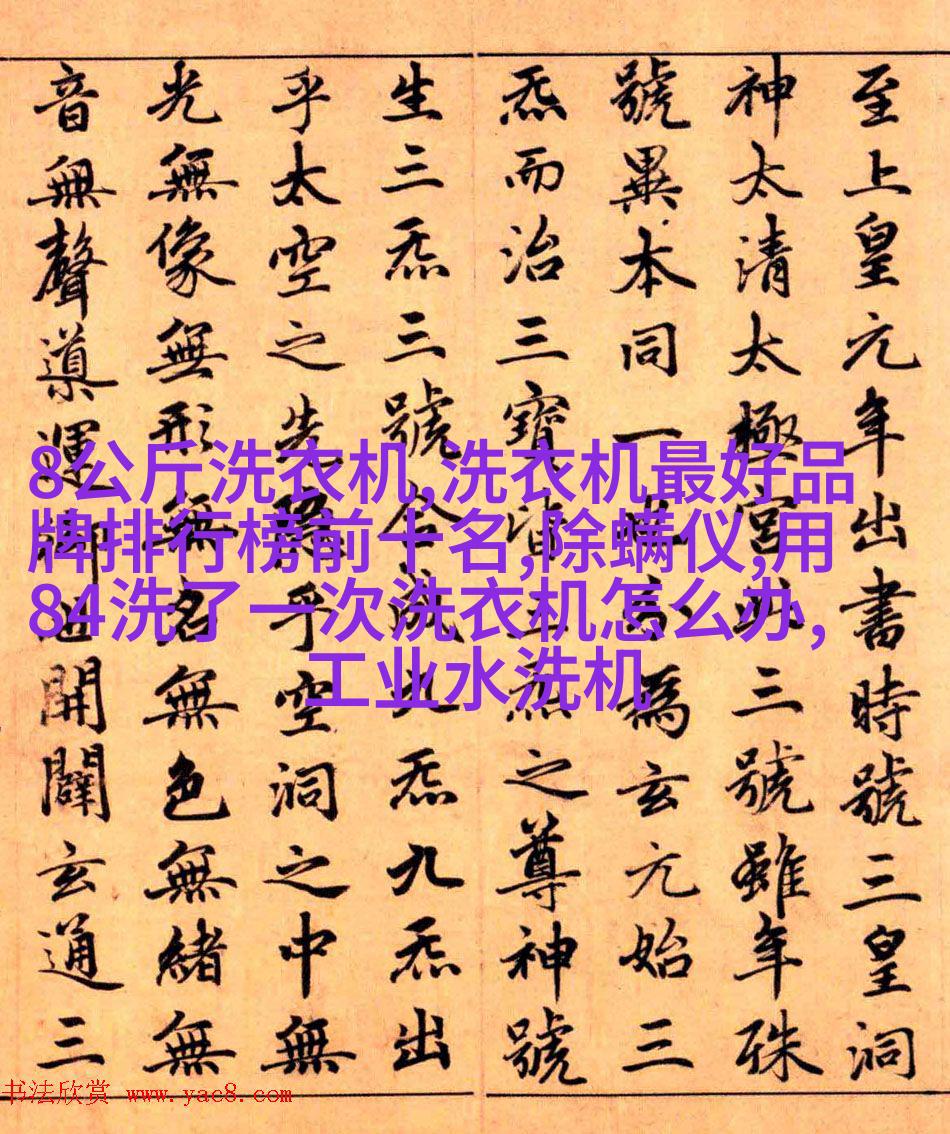 至上皇元年出書時號三皇洞
神太清太極宮此三號雖年殊
號異本同一為玄元始三
炁而治三寶皆三炁之尊神號
生三炁三號合成九炁九炁出
乎太空之先隱乎空洞之中無
光無像無形無名無色無緒無
音無聲導運御世開闢玄通三
8公斤洗衣机,洗衣机最好品
牌排行榜前十名,除螨仪,用
84洗了一次洗衣机怎么办,
工业水洗机
书法欣赏 www.yac8.com